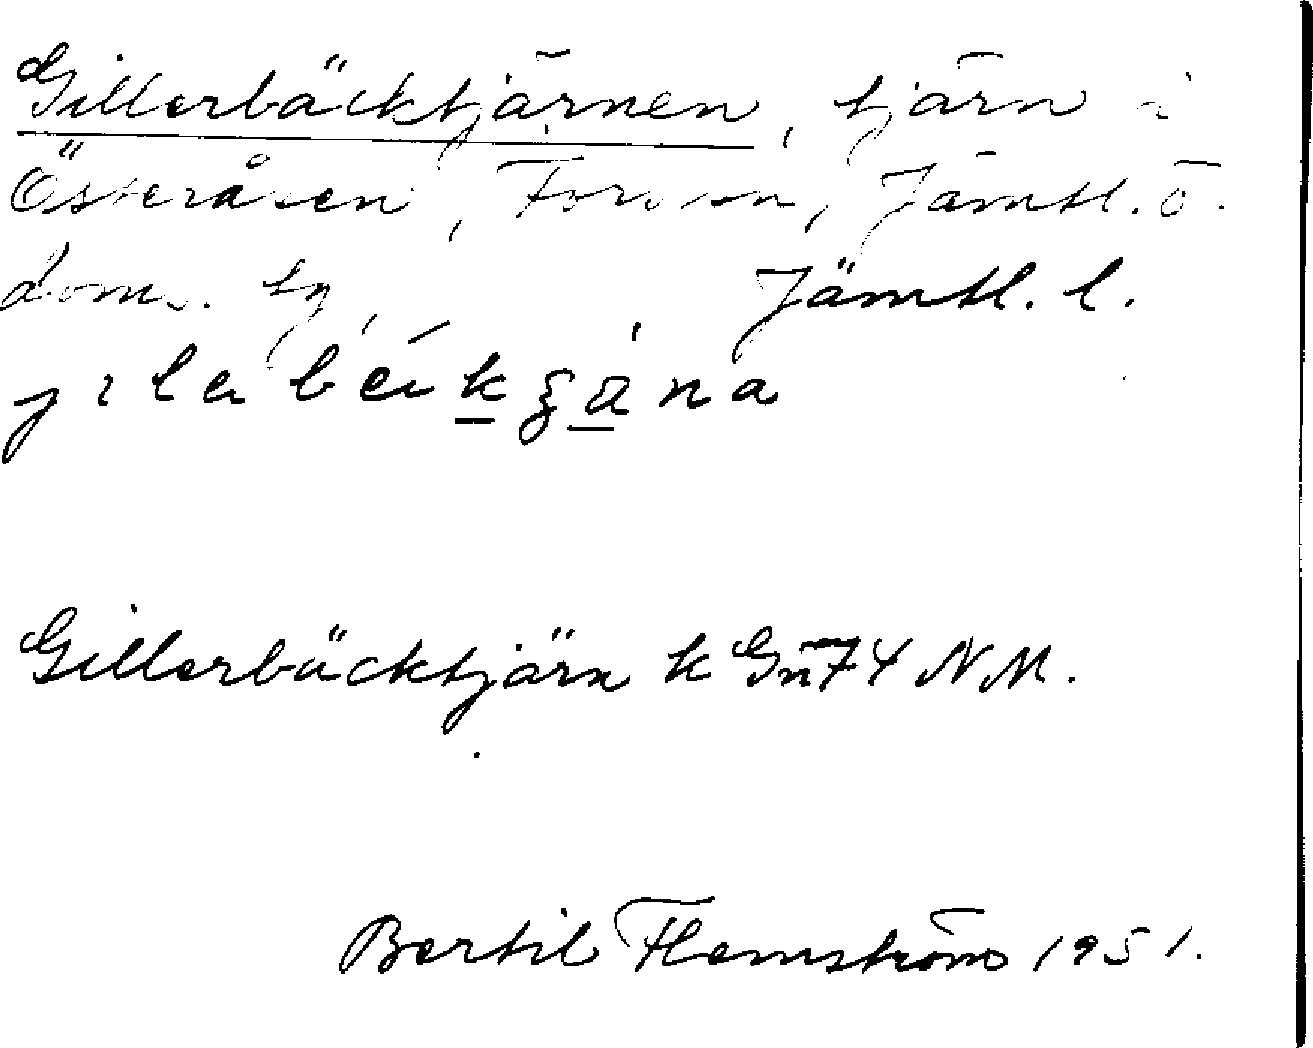 Gillerbäcktjärnen, tjärn i
Österåsen, Fors sn, Jämtl. ö.
doms. tg, Jämtl. l.
Gillerbäcktjärn k Gn74 NM.
Bertil Flemström 1951.